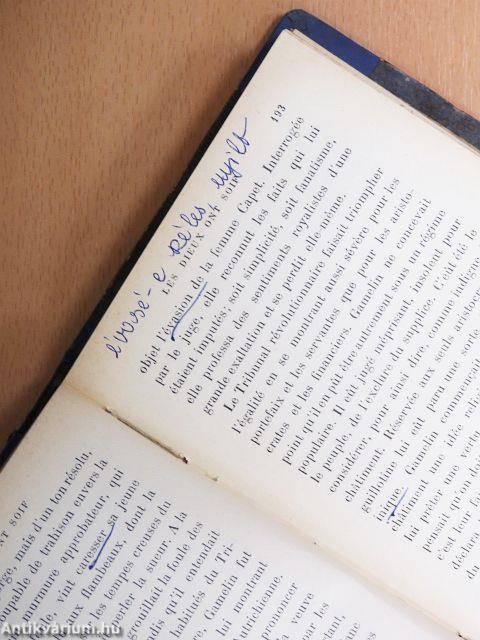 193
LES DIEUX ONT SOIF
évasé-e széles nyílt
objet l'évasion de la femme Capet. Interrogée
par le juge, elle reconnut les faits qui lui
étaient imputés; soit simplicité, soit fanatisme,
elle professa des sentiments royalistes d'une
grande exaltation et se perdit elle-même.
Le Tribunal révolutionnaire faisait triompher
l'égalité en se montrant aussi sévère pour les
portefaix et les servantes que pour les aristo-
crates et les financiers. Gamelin ne concevait
point qu'il en pût être autrement sous un régime
populaire. Il eût jugé méprisant, insolent pour
le peuple, de l'exclure du supplice. C'eût été le
considérer, pour ainsi dire, comme indigne
châtiment. Réservée aux seuls aristocr
guillotine lui eût paru une sorte
inique. Gamelin commençait
châtiment une idée relig
lui prêter une vertu
pensait qu'on doit
c'est leur fai
déclara
NT SOIF
rge, mais d'un ton résolu,
oupable de trahison envers la
murmure approbateur, qui
vint caresser sa jeune
aux flambeaux, dont la
les tempes creuses du
celer la sueur. A la
grouillait la foule des
ndis qu'il entendait
habitués du Tri-
Gamelin fut
lui montrant
utrichienne.
prononcer
preuve
Antikvárium.hu